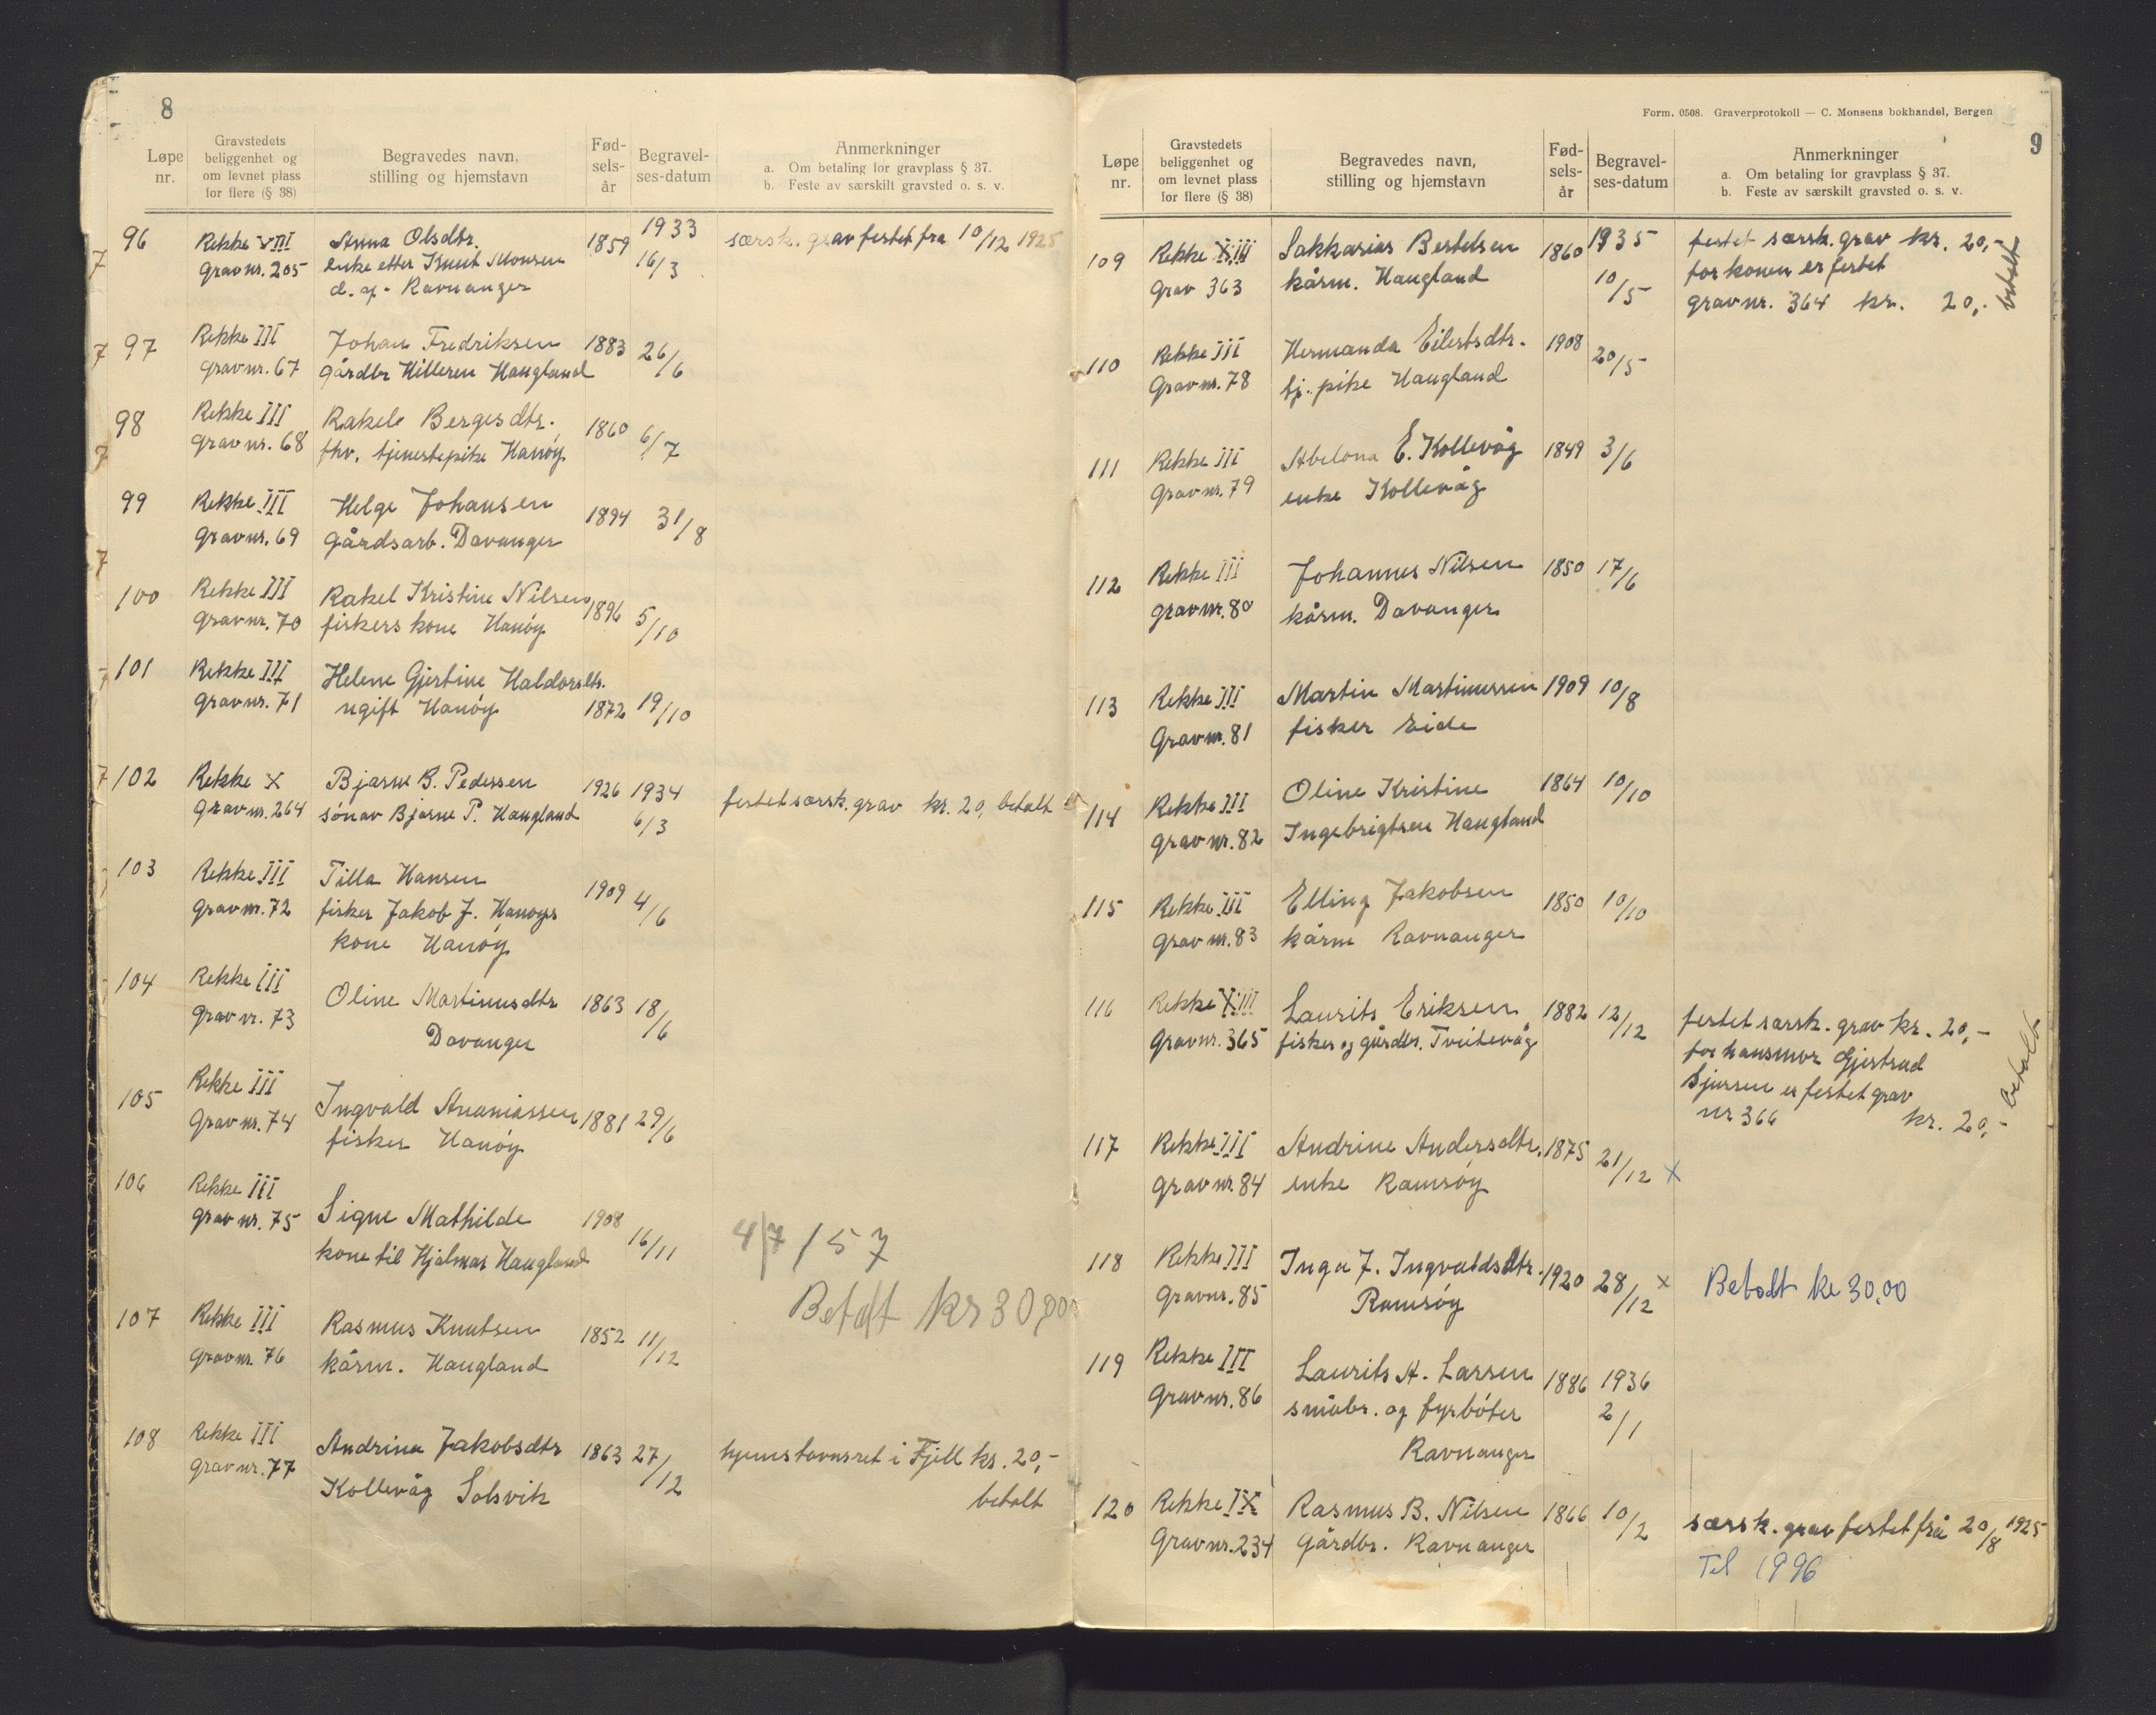 8
Løpe nr.
Gravstedets beliggenhet og om levnet plass for flere (§ 38)
Begravedes navn, stilling og hjemstavn
Fød-sels-år
Begravel-ses-datum
Anmerkninger
a. Om betaling for gravplass § 37.
b. Feste av særskilt gravsted o. s. v.
96 Rekke VIII Anna Olsdtr. 1859 1933 særsk. grav festet fra 10/12 1925
7 Grav nr. 205 enke etter Knut Monsen 16/3
d. y. Ravnanger
7 97 Rekke III Johan Fredriksen 1883 26/6
Grav nr. 67 Gårdbr Hilleren Haugland
98 Rekke III Rakele Bergesdtr. 1860 6/7
7 Grav nr. 68 fhv. tjenestepike Hanøy
99 Rekke III Helge Johansen 1894 31/8
7 Grav nr. 69 Gårdsarb. Davanger
100 Rekke III Rakel Kristine Nilsen 1896 5/10
Grav nr. 70 fiskers kone Hanøy
7 101 Rekke III Helene Gjertine Haldorsdtr.
Grav nr. 71 ugift Hanøy 1872 19/10
7 102 Rekke X Bjarne B. Pedersen 1926 1934 festet særsk. grav kr. 20, betalt
Grav nr. 264 sønav Bjarne P. Haugland 6/3
103 Rekke III Tilla Hansen 1909 4/6
Grav nr. 72 fisker Jakob J. Hanøys
kone Hanøy
104 Rekke III Oline Martinusdtr 1863 18/6
Grav nr. 73 Davanger
105 Rekke III Ingvald Ananiassen 1881 29/6
Grav nr. 74 fisker Hanøy
106 Rekke III Signe Mathilde 1908 16/11 4/7/57
Grav nr. 75 kone til Hjalmar Haugland
Betalt kr 30,00
107 Rekke III Rasmus Knutsen 1852 11/12
Grav nr. 76 kårm. Haugland
108 Rekke III Andrina Jakobsdtr 1863 27/12 hjemstavnsret i Fjell kr. 20,-
Grav nr. 77 Kollevåg Solsvik betalt
Form. 0508. Graverprotokoll — C. Monsens bokhandel, Bergen
9
Løpe nr.
Gravstedets beliggenhet og om levnet plass for flere (§ 38)
Begravedes navn, stilling og hjemstavn
Fød-sels-år
Begravel-ses-datum
Anmerkninger
a. Om betaling for gravplass § 37.
b. Feste av særskilt gravsted o. s. v.
109 Rekke XIII Sakkarias Bertelsen 1860 1935 festet særsk. grav kr. 20,-
Grav 363 kårm. Haugland 10/5 for konen er festet
grav nr. 364 kr. 20,- betalt
110 Rekke III Hermanda Eilertsdtr. 1908 20/5
Grav nr. 78 tj. pike Haugland
111 Rekke III Abelona E. Kollevåg 1849 3/6
Grav nr. 79 enke Kollevåg
112 Rekke III Johannes Nilsen 1850 17/6
Grav nr. 80 kårm. Davanger
113 Rekke III Martin Martinussen 1909 10/8
Grav nr. 81 fisker Eide
114 Rekke III Oline Kristine 1864 10/10
Grav nr. 82 Ingebrigtsen Haugland
115 Rekke III Elling Jakobsen 1850 10/10
Grav nr. 83 kårm Ravnanger
116 Rekke XIII Laurits Eriksen 1882 12/12 festet særsk. grav kr. 20,-
Grav nr. 365 fisker og gårdbr. Tveitevåg for hans mor Gjertrud
Sjursen er festet grav
nr 366 kr. 20,- betalt
117 Rekke III Andrine Andersdtr. 1875 21/12 X
Grav nr. 84 enke Ramsøy
118 Rekke III Inga J. Ingvaldsdtr. 1920 28/12 x Betalt kr 30,00
Grav nr. 85 Ramsøy
119 Rekke III Laurits A. Larsen 1886 1936
Grav nr. 86 småbr. og fyrbøter 2/1
Ravnanger
120 Rekke IX Rasmus B. Nilsen 1866 10/2 særsk. grav festet frå 20/8 1925
Grav nr. 234 Gårdbr. Ravnanger Til 1996